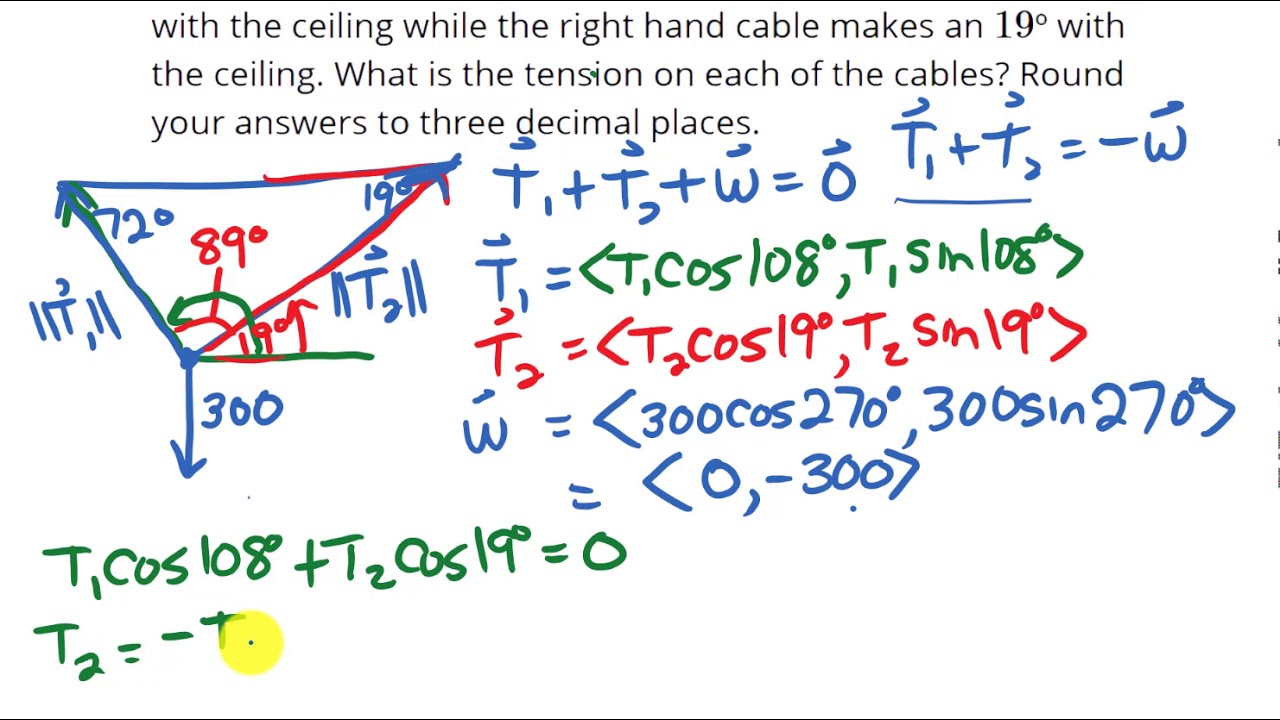 with the ceiling while the right hand cable makes an 19° with
the ceiling. What is the tension on each of the cables? Round
your answers to three decimal places.
T⃗₁ + T⃗₂ = -w⃗
T⃗₁ + T⃗₂ + w⃗ = 0⃗
72°
19°
89°
||T⃗₁||
||T⃗₂||
19°
300
T⃗₁ = <T₁cos108°, T₁sin108°>
T⃗₂ = <T₂cos19°, T₂sin19°>
w⃗ = <300cos270°, 300sin270°>
= <0, -300>
T₁cos108° + T₂cos19° = 0
T₂ = -T